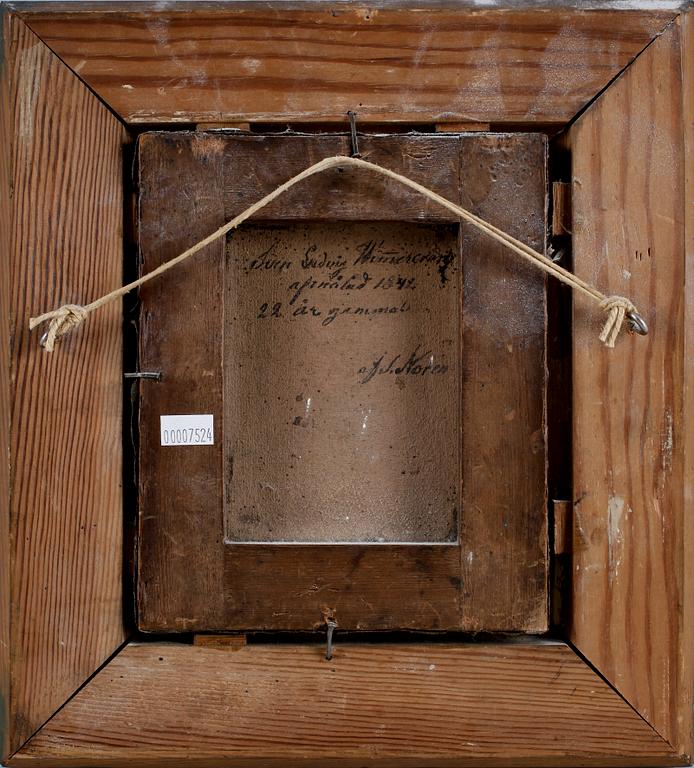 Sven Ludvig Wimmercranz
afmålad 1842.
22 år gammal
af J. Noren
00007524